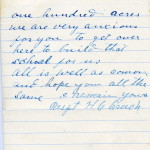 one hundred acres
we are very ancious
for you to get over
here to build that
school for us
all is well as common
and hope you all the
same I remain yours
H C